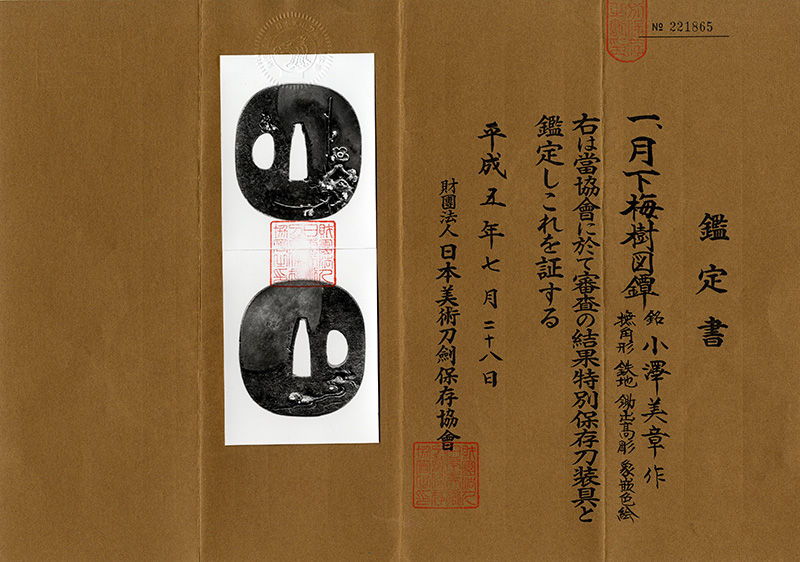 № 221865
鑑定書
一、月下梅樹図鐔 銘 小澤美章作
撫角形 鉄地 鋤出高彫 象嵌色絵
右は當協會に於て審査の結果特別保存刀装具と
鑑定しこれを証する
平成五年七月二十八日
財團法人 日本美術刀劍保存協會